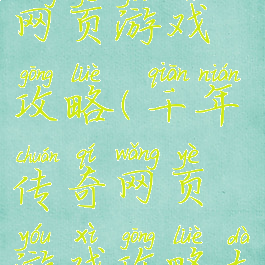 网页游戏
gōng lüè qiān nián
攻略(千年
chuán qí wǎng yè
传奇网页
yóu xì gōng lüè dà
游戏攻略大